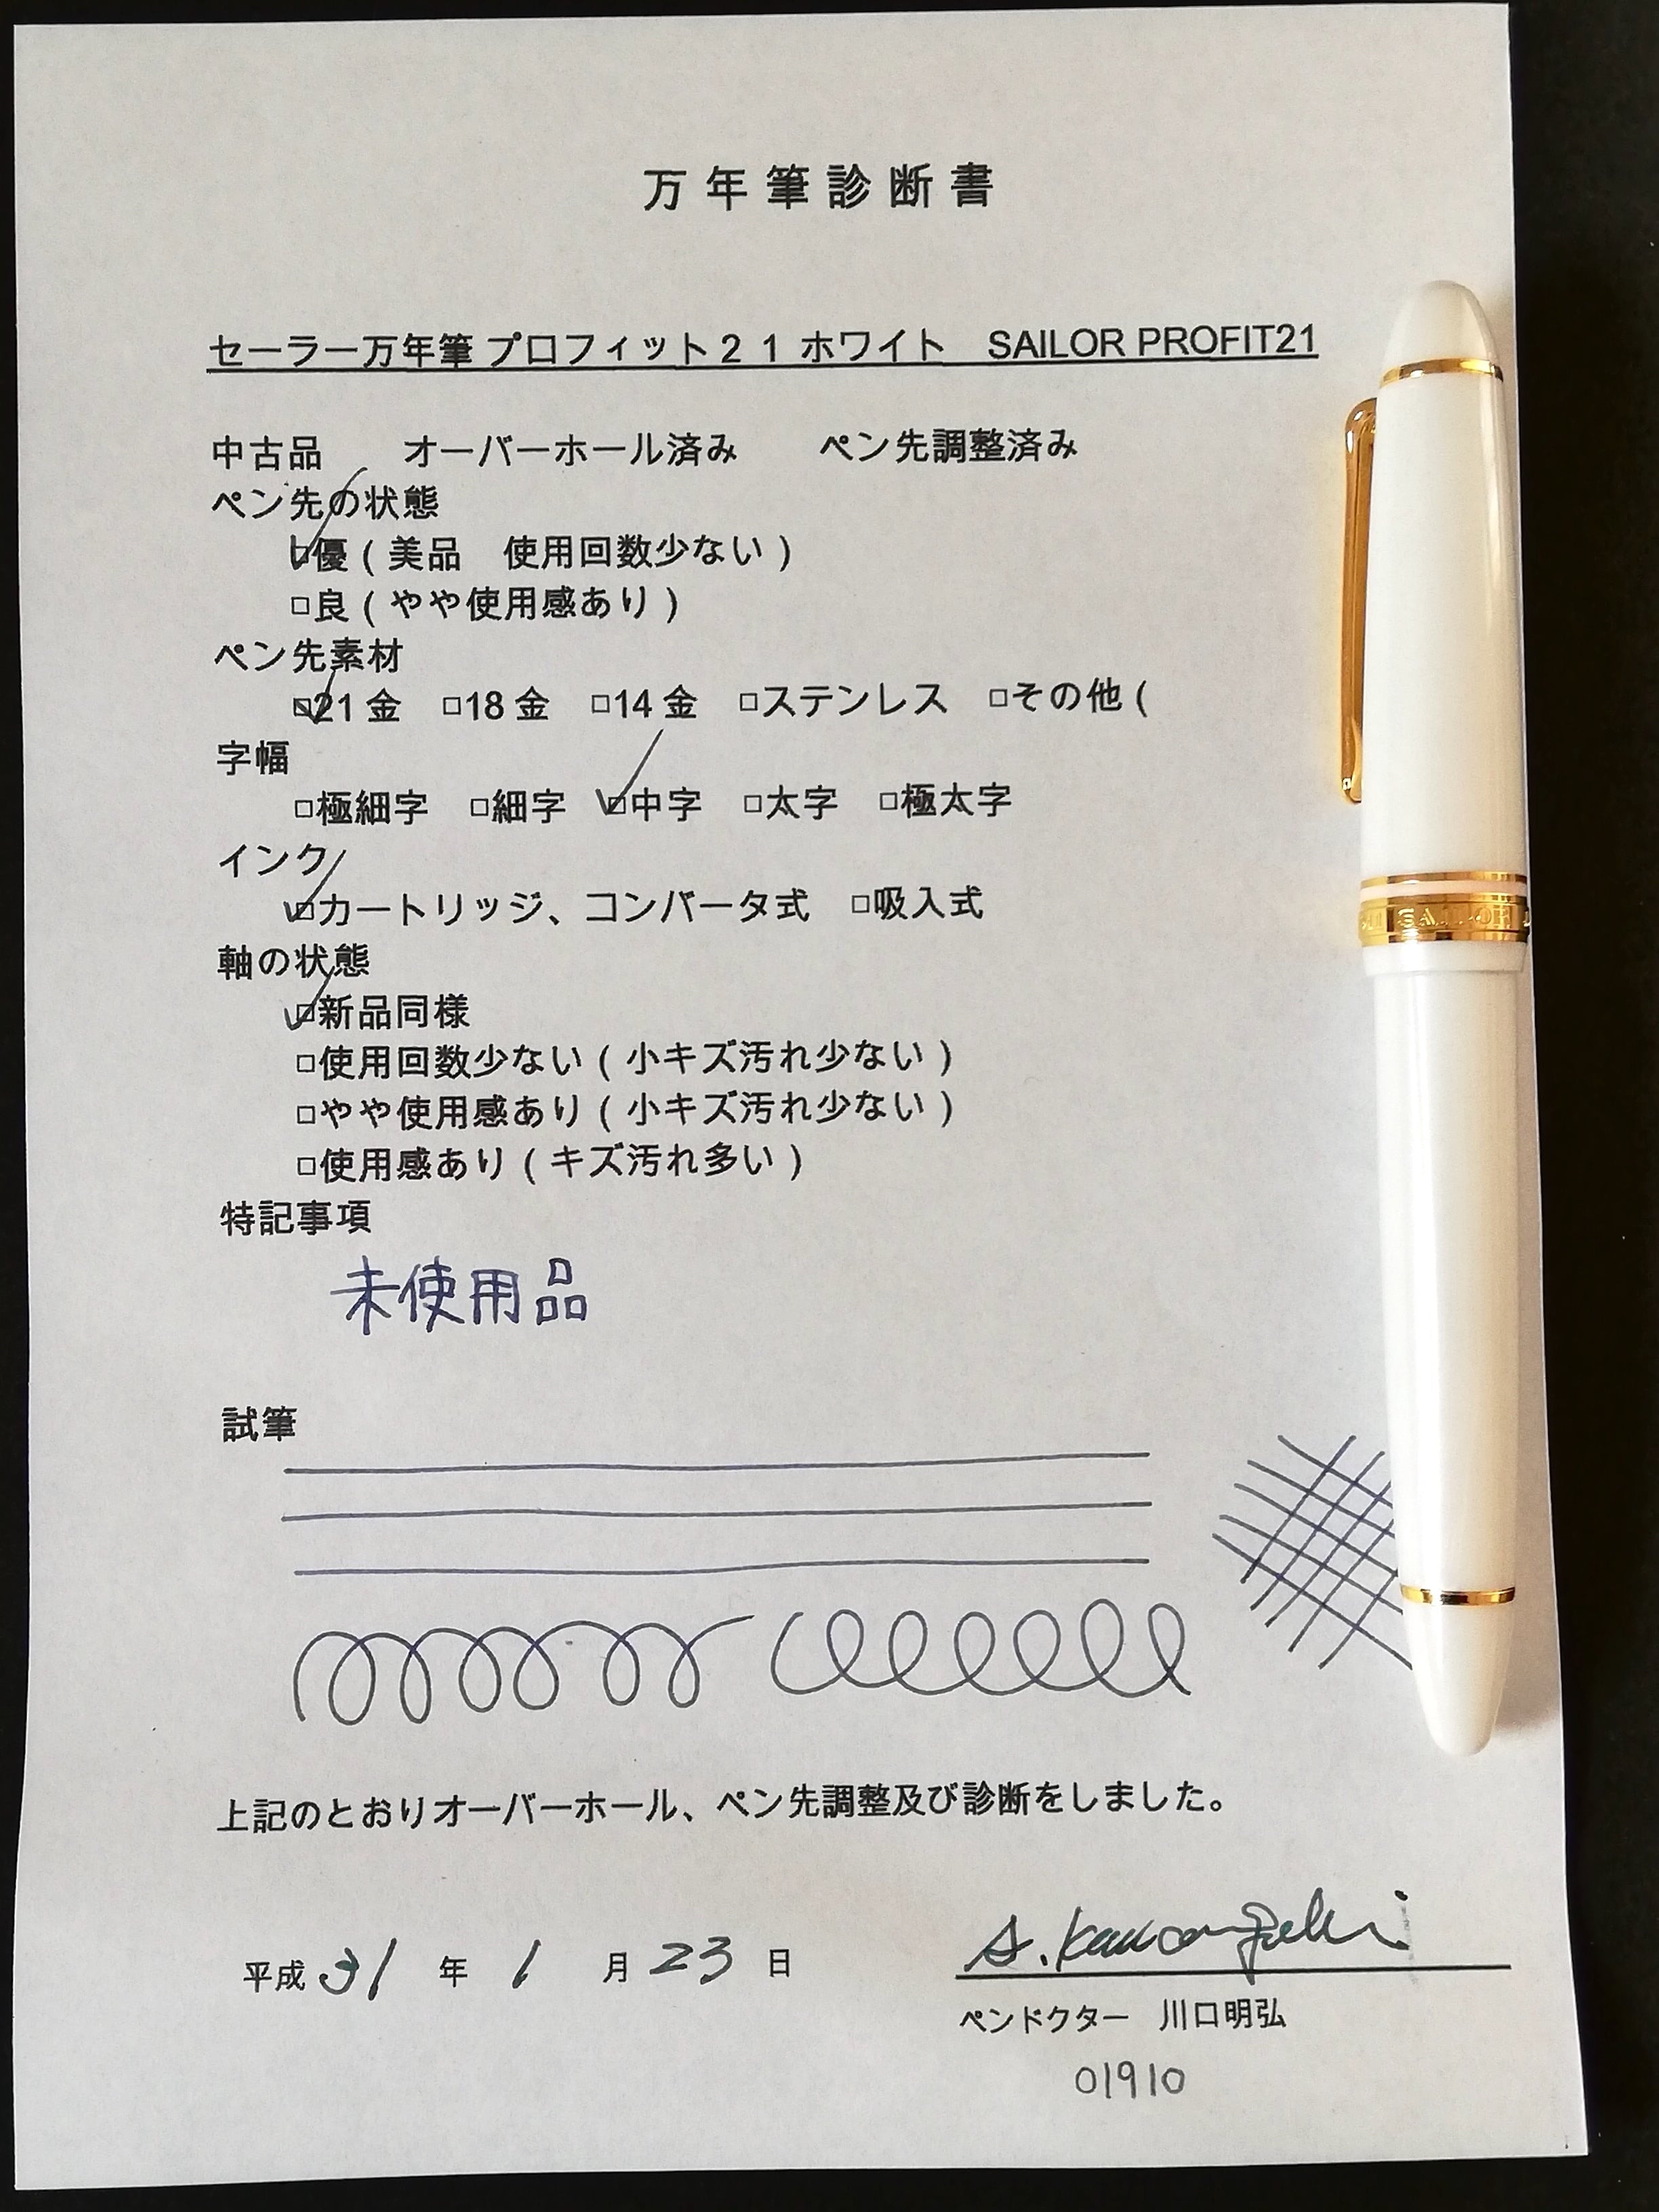 万年筆診断書
セーラー万年筆 プロフィット２１ホワイト　SAILOR PROFIT21
中古品　　オーバーホール済み　　ペン先調整済み
ペン先の状態
□優（美品　使用回数少ない）
□良（やや使用感あり）
ペン先素材
□21金　□18金　□14金　□ステンレス　□その他（
字幅
□極細字　□細字　□中字　□太字　□極太字
インク
□カートリッジ、コンバータ式　□吸入式
軸の状態
□新品同様
□使用回数少ない（小キズ汚れ少ない）
□やや使用感あり（小キズ汚れ少ない）
□使用感あり（キズ汚れ多い）
特記事項
未使用品
試筆
上記のとおりオーバーホール、ペン先調整及び診断をしました。
平成 31 年 1 月 23 日
ペンドクター　川口明弘
01910
SAILOR